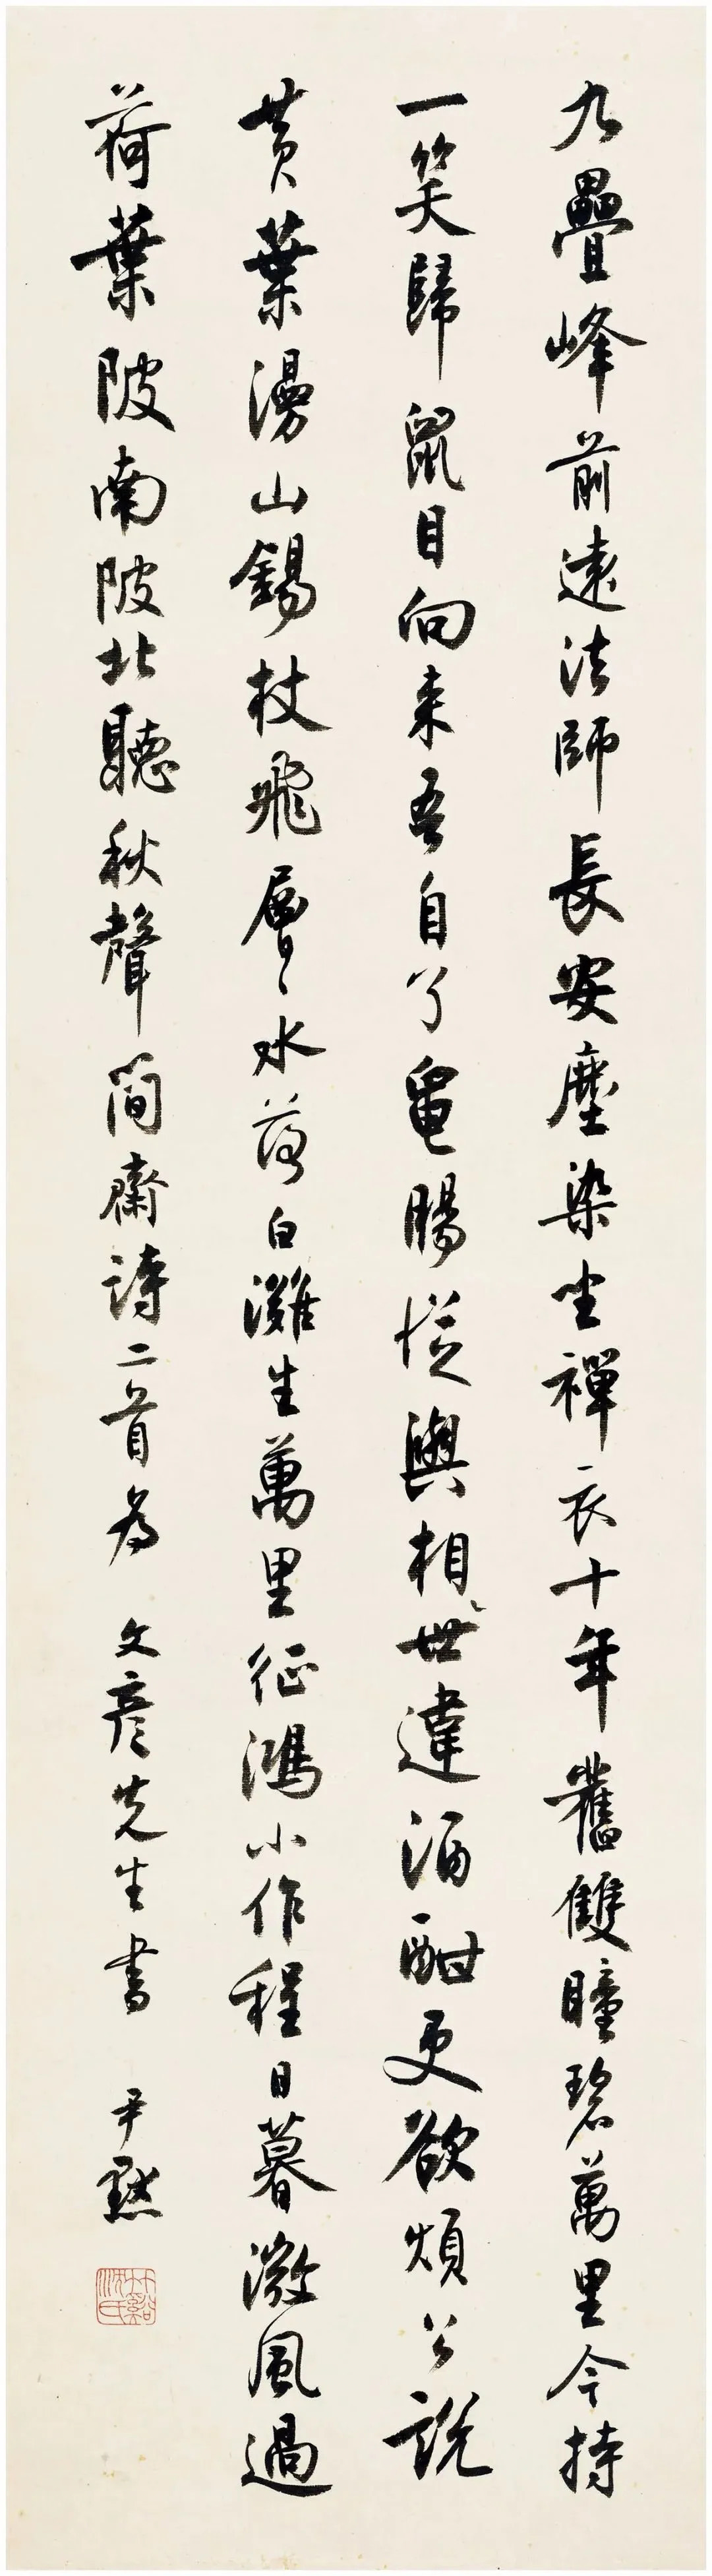 九疊峰前遠法師長安塵染坐禪衣十年舊雙瞳碧萬里今持
一笑歸鼠目向來吾自了龜腸從與相世違酒酣更欲煩公說
黄葉漫山錫杖飛層〻水落白灘生萬里征鴻小作程日暮微風過
荷葉陂南陂北聽秋聲簡齋詩二首為 文彦先生書 尹默
竹谿沈氏